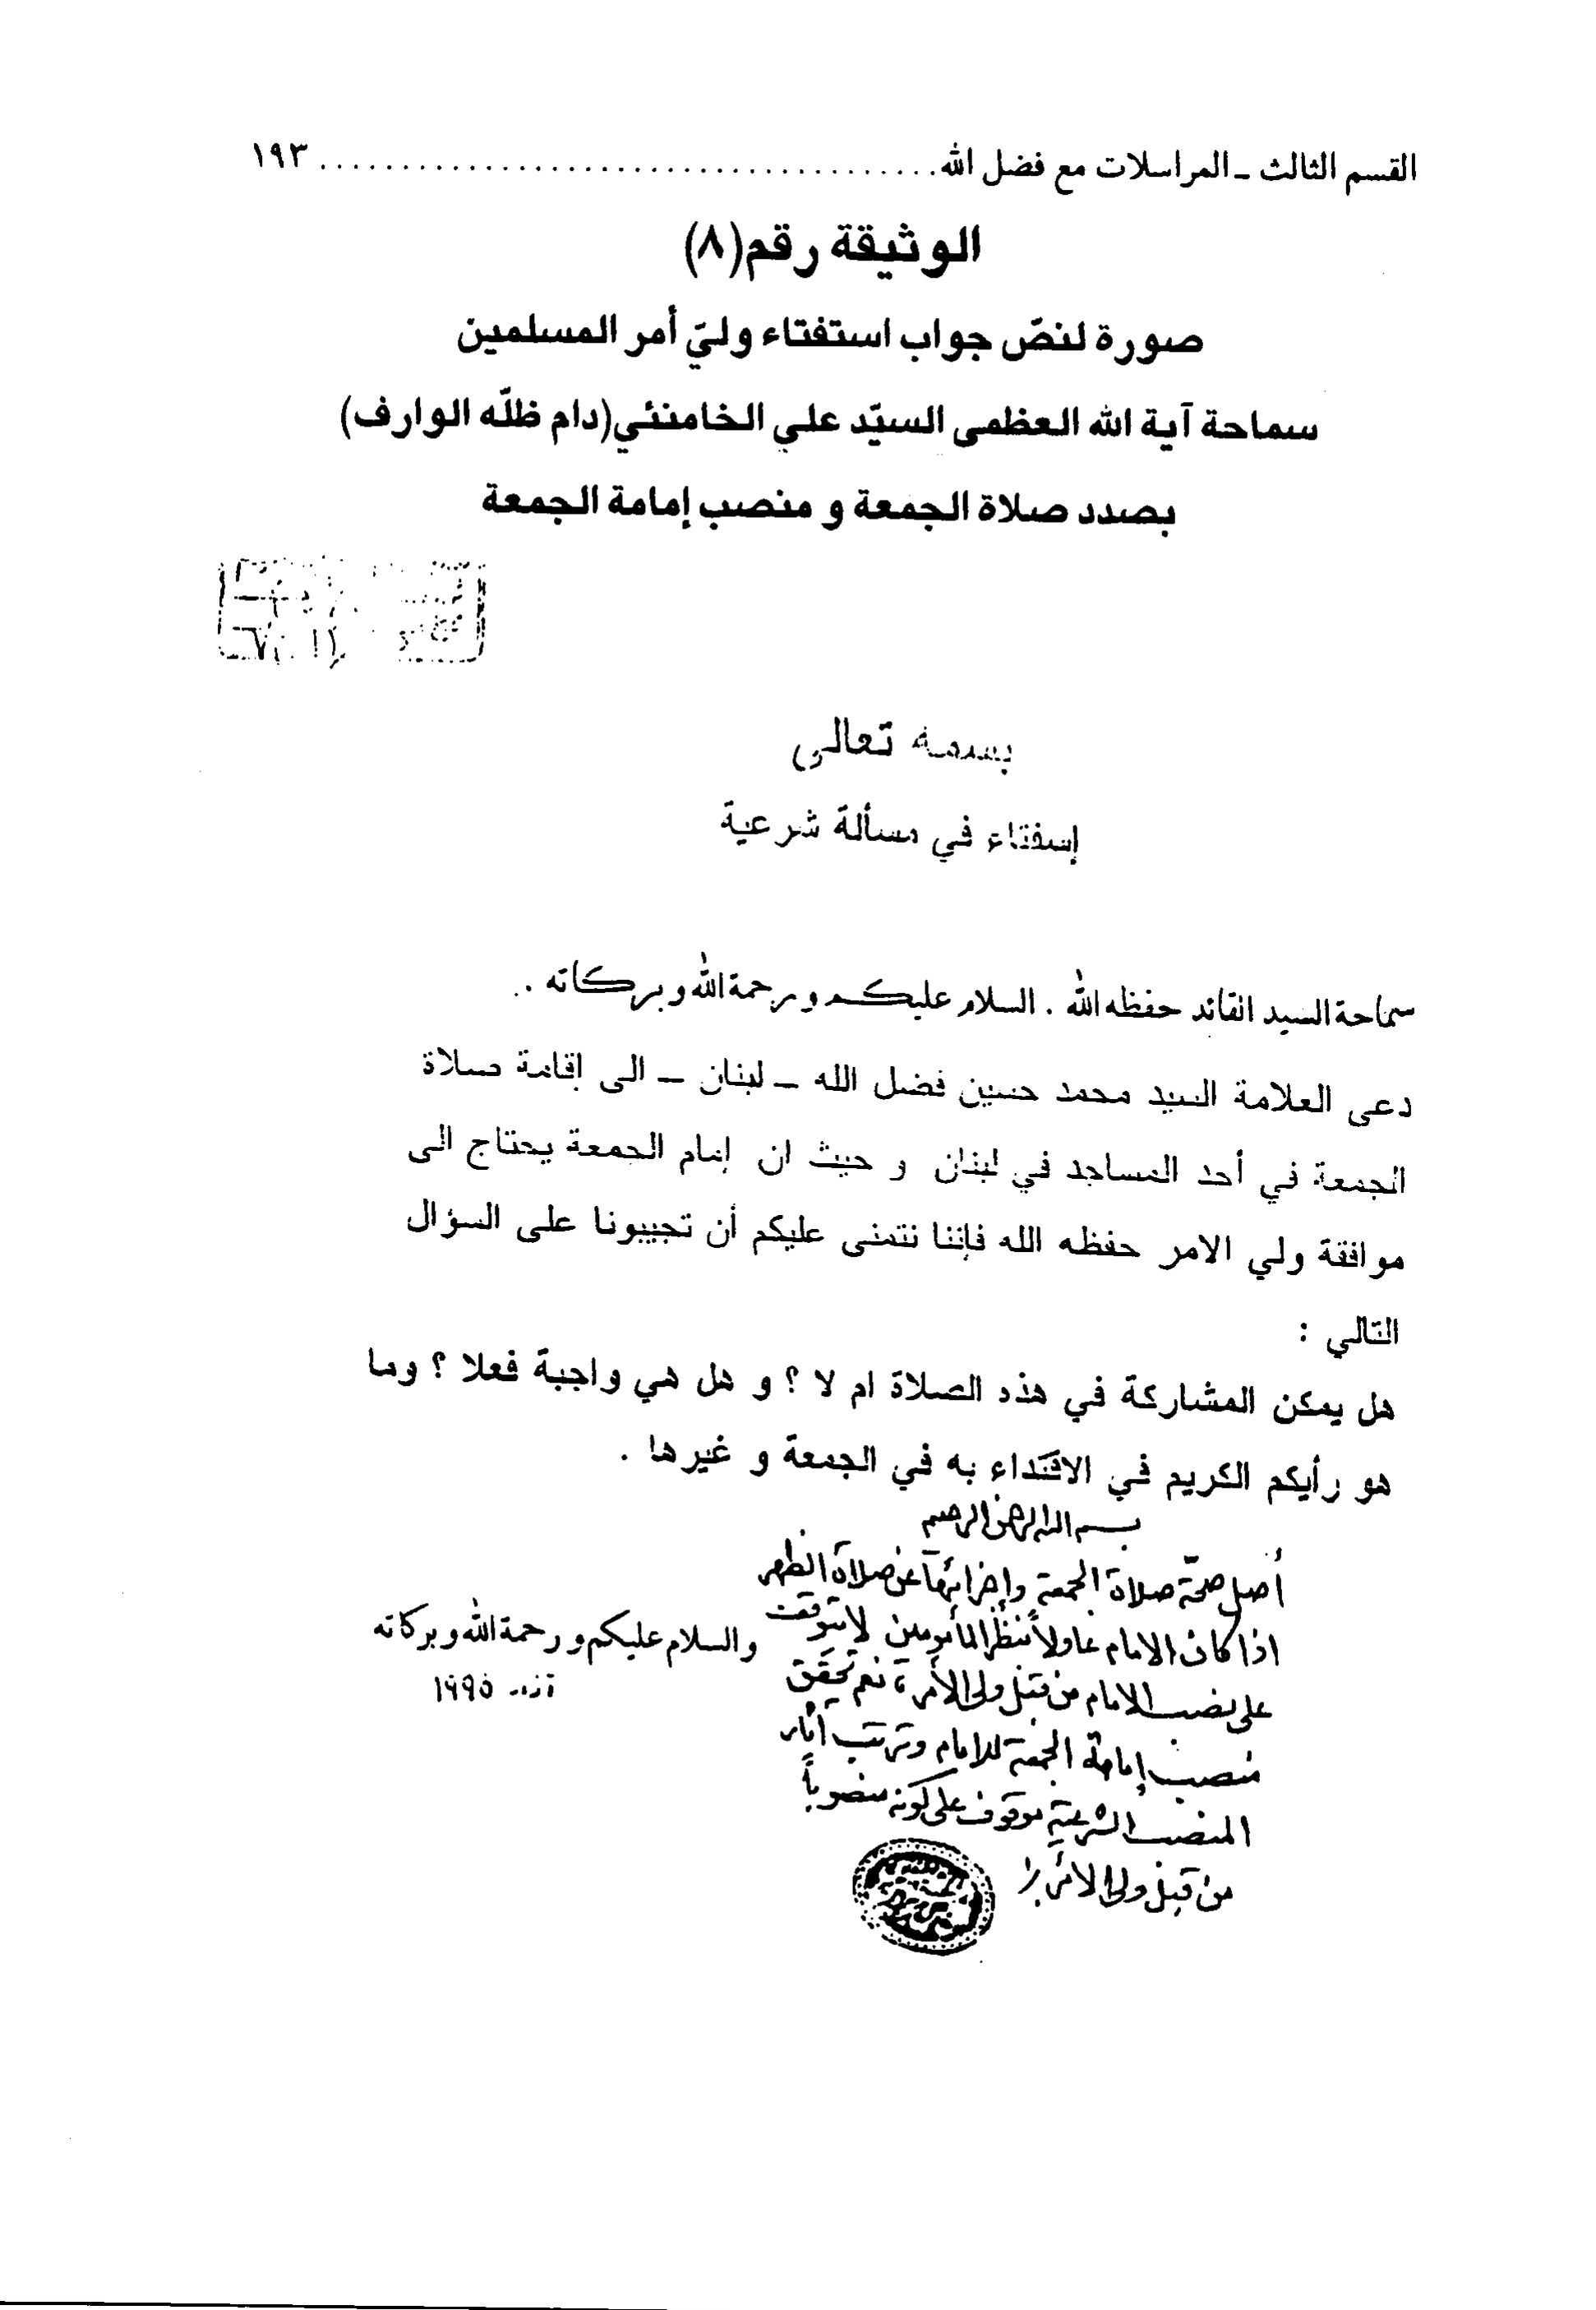 القسم الثالث ـ المراسلات مع فضل الله ...................................... ١٩٣
الوثيقة رقم(٨)
صورة لنصّ جواب استفتاء وليّ أمر المسلمين
سماحة آية الله العظمى السيّد علي الخامنئي(دام ظلّه الوارف)
بصدد صلاة الجمعة و منصب إمامة الجمعة
بسمه تعالى
إسفتاء في مسألة شرعية
سماحة السيد القائد حفظه الله . السلام عليكم ورحمة الله وبركاته .
دعى العلامة السيد محمد حسين فضل الله – لبنان – الى إقامة صلاة
الجمعة في أحد المساجد في لبنان و حيث ان إمام الجمعة يحتاج الى
موافقة ولي الامر حفظه الله فإننا نتمنى عليكم أن تجيبونا على السؤال
التالي :
هل يمكن المشاركة في هذه الصلاة ام لا ؟ و هل هي واجبة فعلا ؟ وما
هو رأيكم الكريم في الاقتداء به في الجمعة و غيرها .
بسم الله الرحمن الرحيم
أصل صحّة صلاة الجمعة وإجزائها عن صلاة الظهر
اذا كان الامام عادلاً بنظر المأمومين لا تتوقف
على نصب الامام من قبل ولي الأمر، نعم تحقق
منصب إمامة الجمعة للامام وترتب آثار
المنصب الشرعية موقوف على كونه منصوباً
من قبل ولي الأمر
والسلام عليكم ورحمة الله وبركاته
١٩٩٥